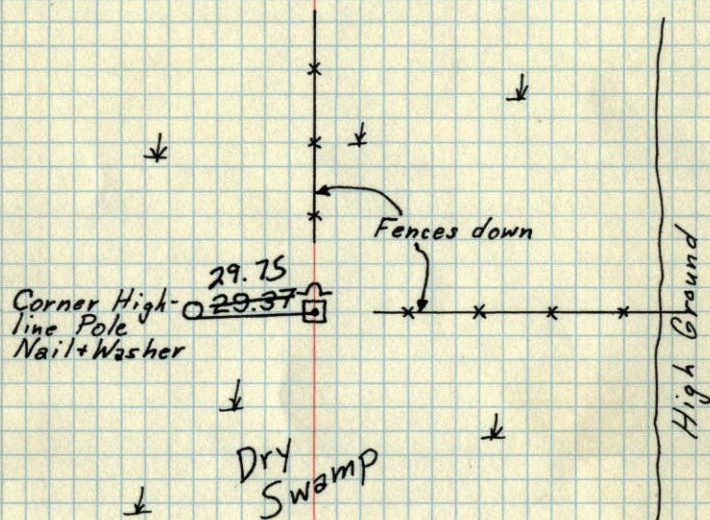 Fences down
29.75
29.37
Corner High-
line Pole
Nail+Washer
High Ground
Dry
Swamp